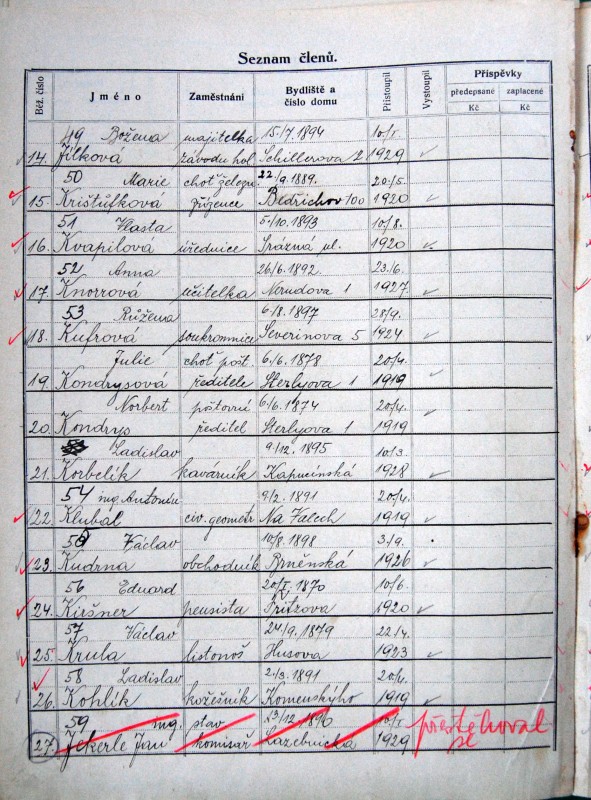 Seznam členů.
Běž. číslo
Jméno
Zaměstnání
Bydliště a
číslo domu
Přistoupil
Vystoupil
Příspěvky
předepsané
zaplacené
Kč
Kč
49 Božena majitelka 15./7. 1894 10/I.
14. Jílková závodu hol. Schillerova 2 1929
50 Marie choť železn. 22./9. 1889. 20./5.
15. Krištůfková zřízence Bedřichov 100 1920
51 Vlasta 5./10. 1893 10/8.
16. Kvapilová úřednice Srázná ul. 1920
52 Anna 26/6. 1892. 23./6.
17. Knorrová učitelka Nerudova 1 1927
53 Růžena 6/8. 1897 28/9.
18. Kufrová soukromnice Severinova 5 1924
Julie choť pošt. 6./6. 1878 20/4.
19. Kondrysová ředitele Sterlyova 1 1919
Norbert poštovní 6/6. 1874 20/4.
20. Kondrys ředitel Sterlyova 1 1919
Ladislav 9/12. 1895 10/3.
21. Korbelík kavárník Kapucínská 1928
54 ing. Antonín 9/2. 1891 20/4.
22. Klubál civ. geometr Na Valech 1919
55 Václav 10/8. 1898 3./9.
23. Kudrna obchodník Brněnská 1926
56 Eduard 20/IV. 1870 10/6.
24. Kiršner pensista Fritzova 1920
57 Václav 24/9. 1879 22/4.
25. Krula listonoš Husova 1923
58 Ladislav 2./3. 1891 20/4.
26. Kohlík kožešník Komenského 1919
59 ing. stav. 23/12. 1896 10/I. přestěhoval
27. Jekerle Jan komisař Lazebnická 1929 se